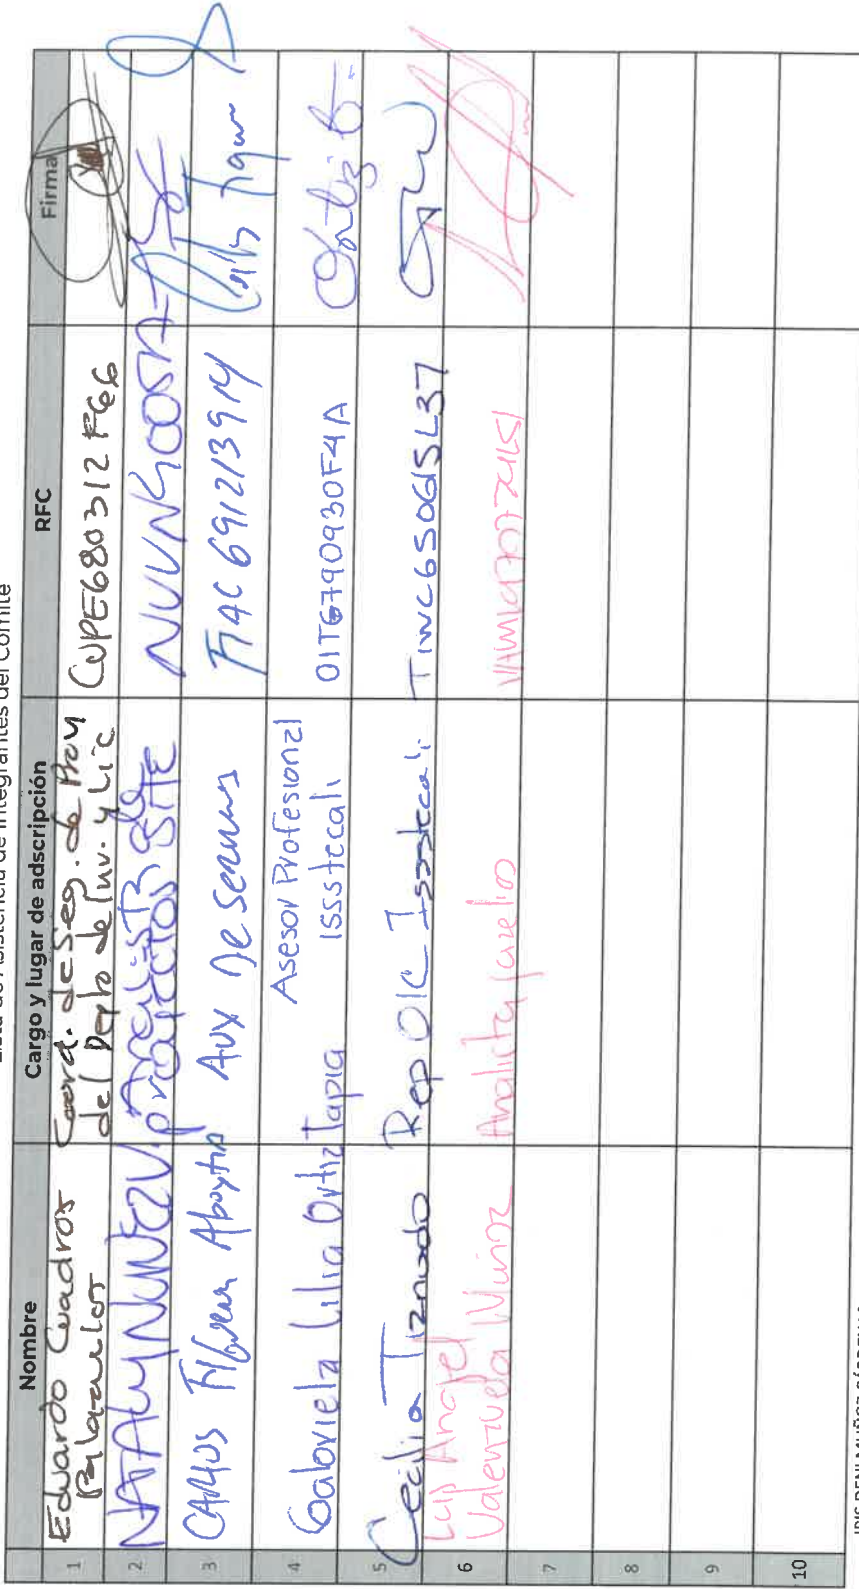 Lista de Asistencia de Integrantes del Comité
Nombre
Cargo y lugar de adscripción
RFC
Firma
1
Eduardo Cuadros
Palazuelos
Coord. de Seg. de Proy
del Depto de Inv. y Lic
CUPE680312FG6
2
NATALY NUNEZ V.
Analista de
proyectos
3
CARLOS Figueroa Aboytia
Aux De
FIAC691213914
Carlos Figueroa
4
Gabriela Lilia Ortiz Tapia
Asesor Profesional
Issstecali
OITG790930F4A
Ortiz G.
5
Cecilia Tiznado
Rep OIC Issstecali
TINC650615L37
6
Luis Angel
Valenzuela Muñoz
Analista
7
8
9
10